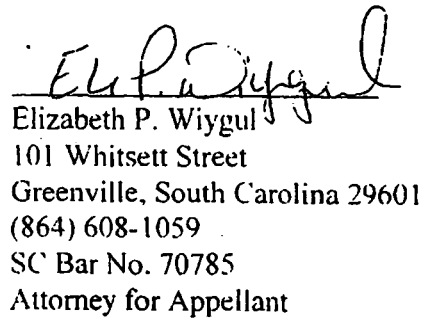 Elizabeth P. Wiygul
101 Whitsett Street
Greenville, South Carolina 29601
(864) 608-1059
SC Bar No. 70785
Attorney for Appellant